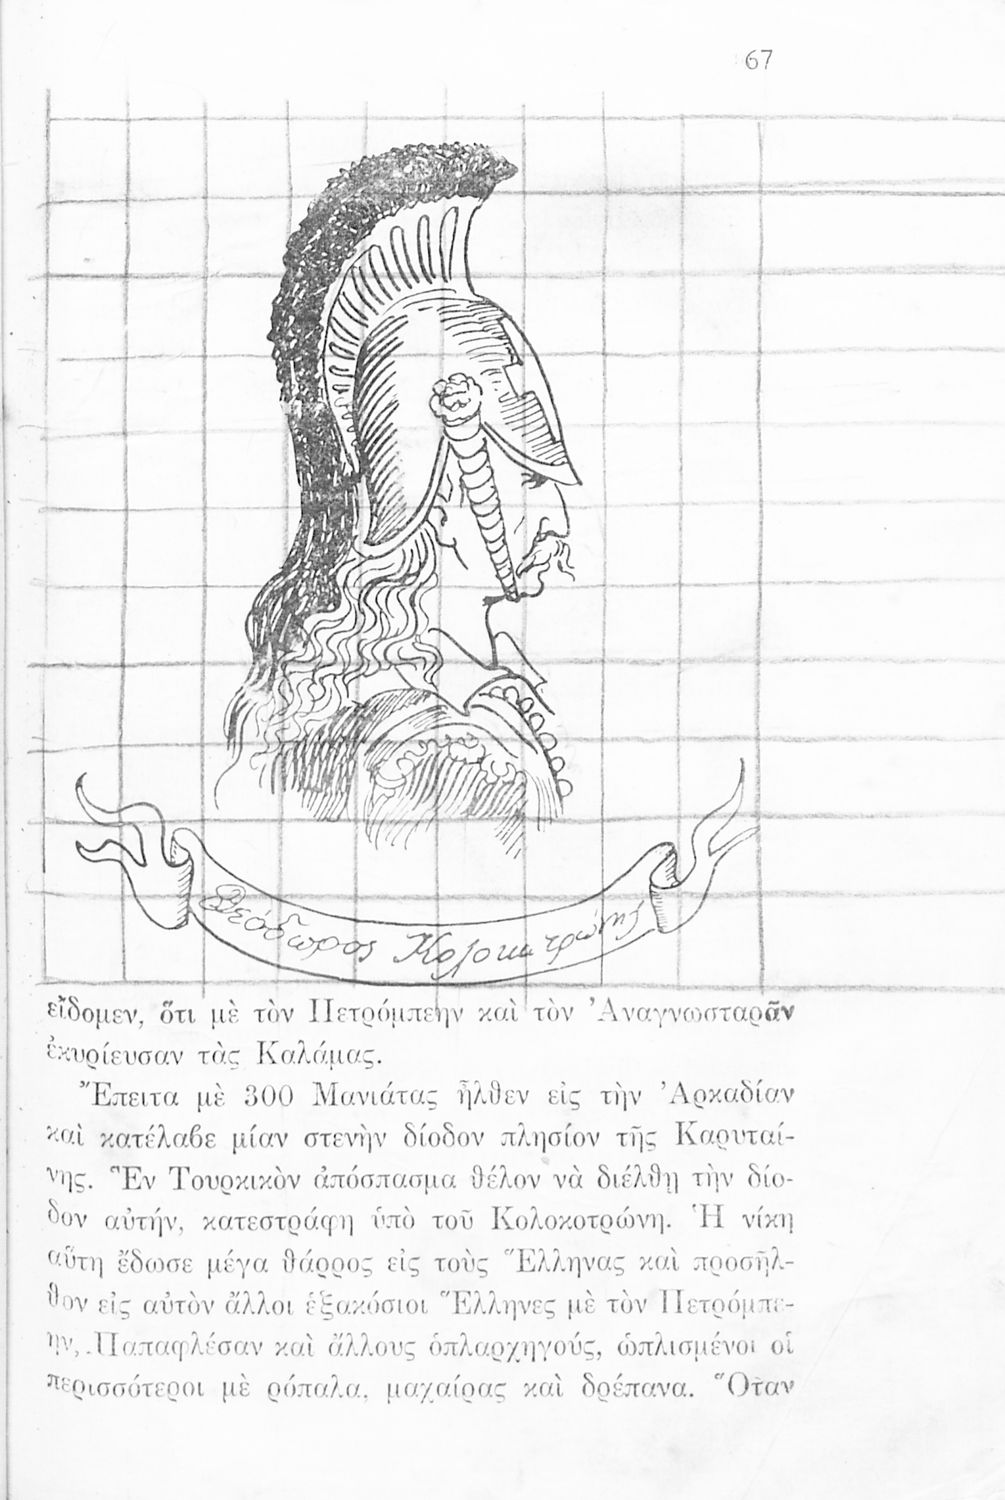 67
Θεόδωρος Κολοκοτρώνης
εἴδομεν, ὅτι μὲ τὸν Πετρόμπεην καὶ τὸν Ἀναγνωσταρᾶν
ἐκυρίευσαν τὰς Καλάμας.
Ἔπειτα μὲ 300 Μανιάτας ἦλθεν εἰς τὴν Ἀρκαδίαν
καὶ κατέλαβε μίαν στενὴν δίοδον πλησίον τῆς Καρυταί-
νης. Ἓν Τουρκικὸν ἀπόσπασμα θέλον νὰ διέλθῃ τὴν δίο-
δον αὐτήν, κατεστράφη ὑπὸ τοῦ Κολοκοτρώνη. Ἡ νίκη
αὕτη ἔδωσε μέγα θάρρος εἰς τοὺς Ἕλληνας καὶ προσῆλ-
θον εἰς αὐτὸν ἄλλοι ἑξακόσιοι Ἕλληνες μὲ τὸν Πετρόμπε-
ην, Παπαφλέσαν καὶ ἄλλους ὁπλαρχηγούς, ὡπλισμένοι οἱ
περισσότεροι μὲ ρόπαλα, μαχαίρας καὶ δρέπανα. Ὅταν